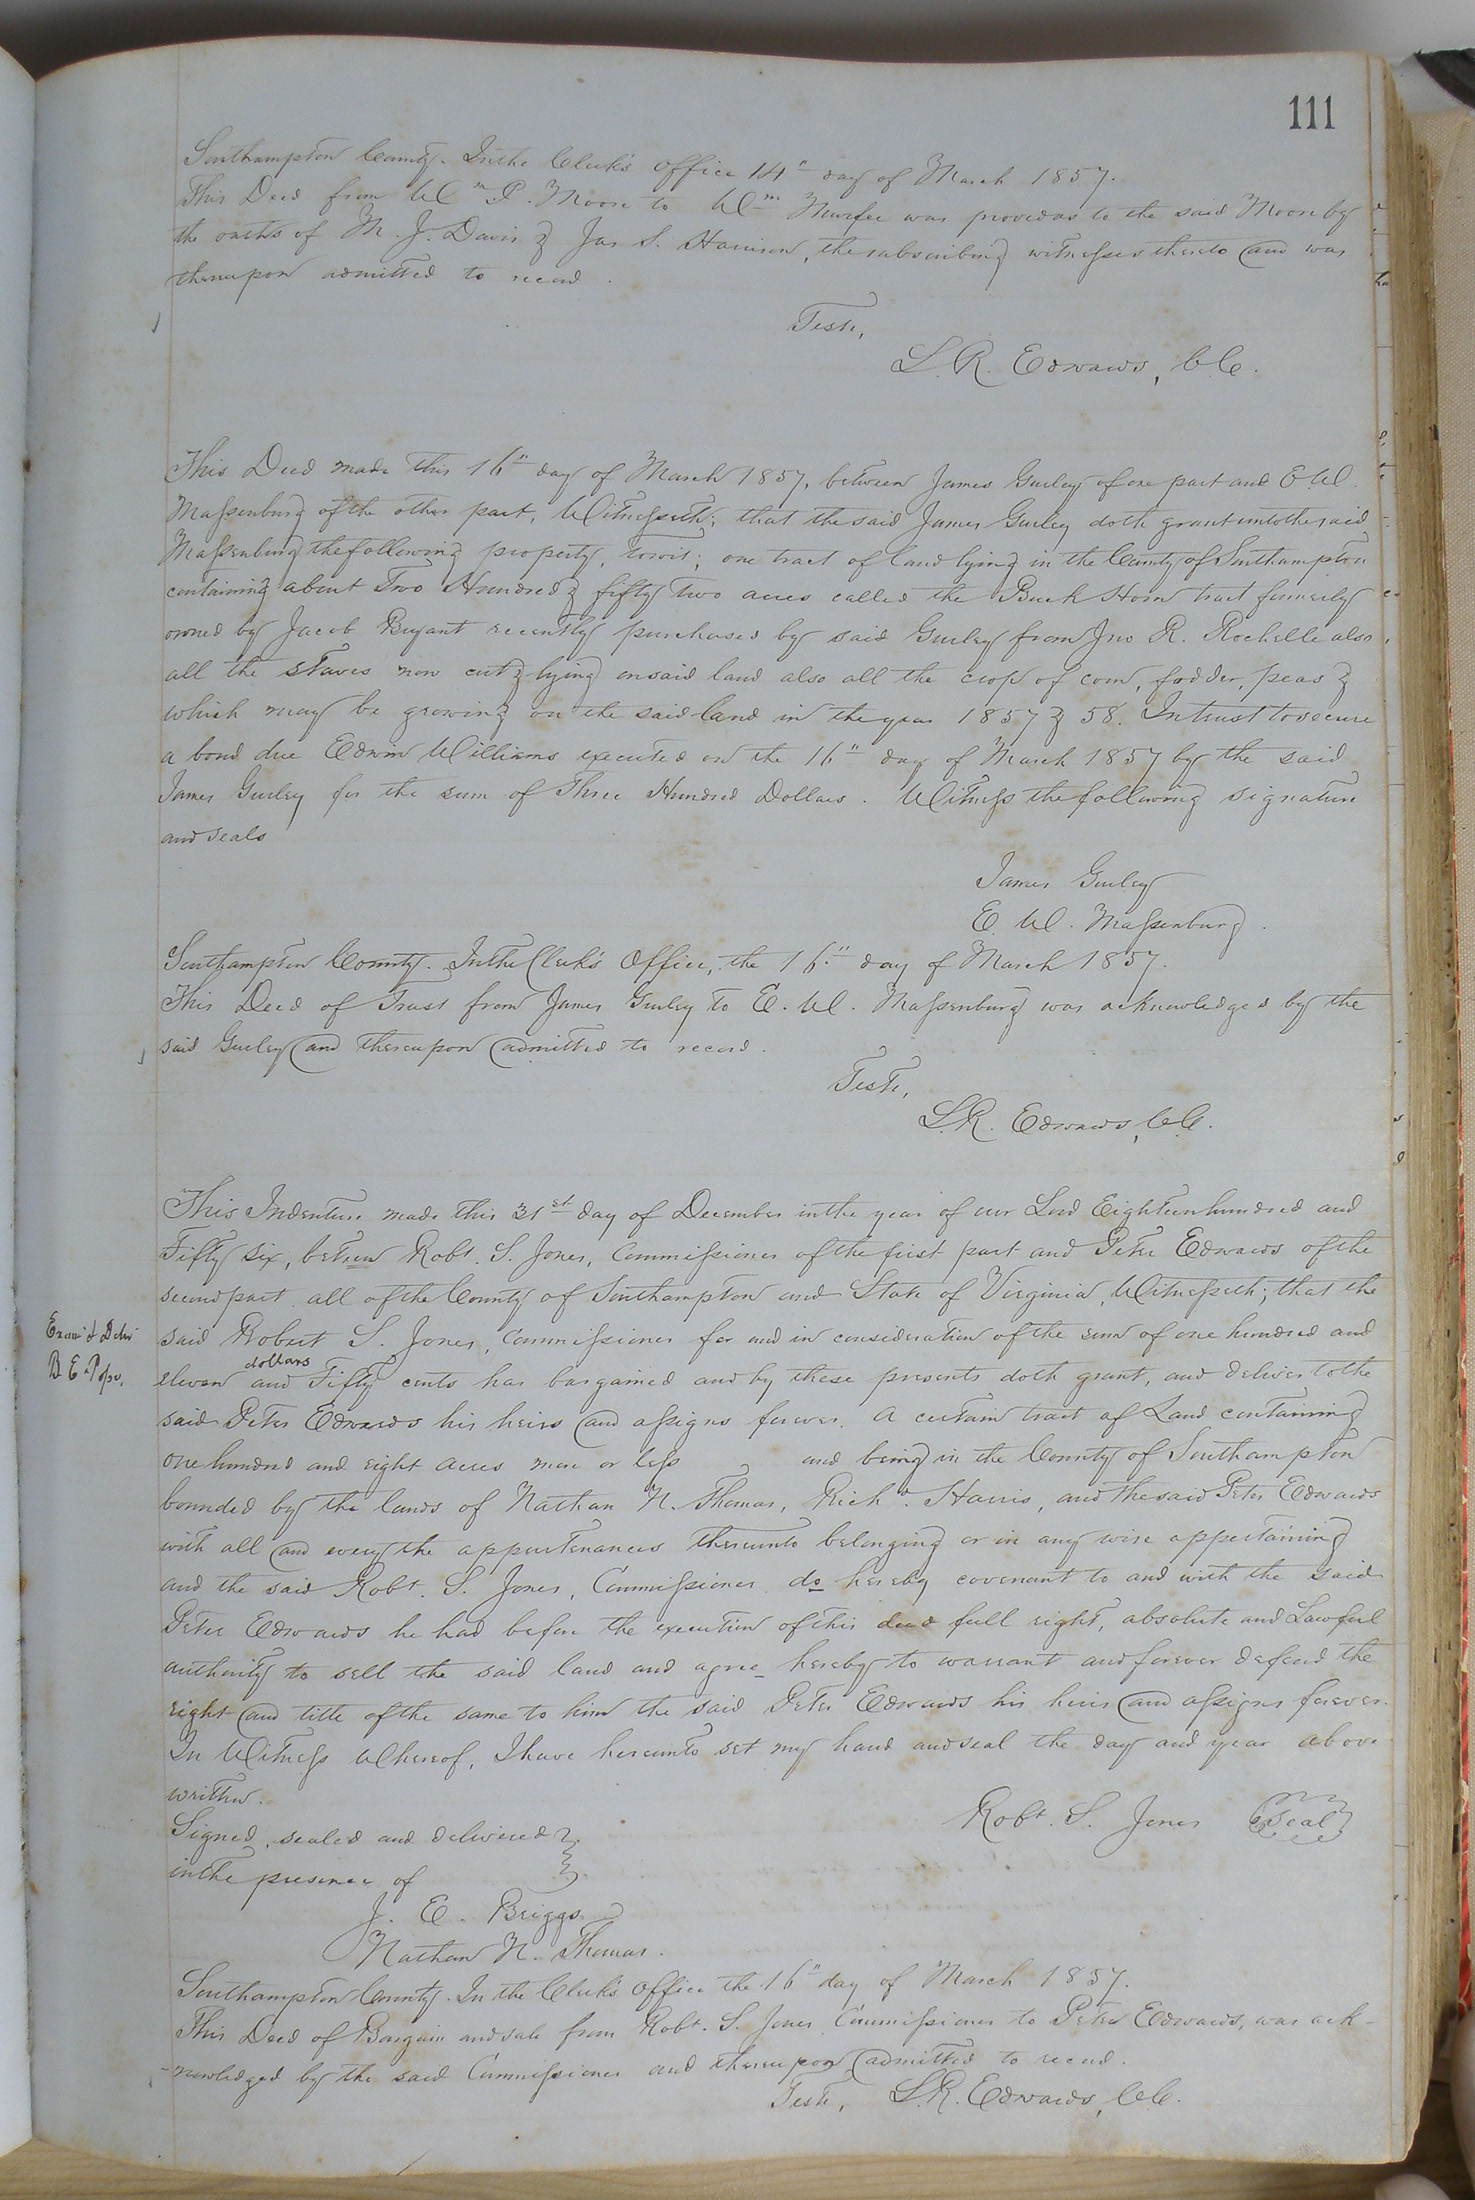 111
Southampton County. In the Clerk's Office 14" day of March 1857.
This Deed from Wm P. Moore to Wm Murfee was proved as to the said Moore by
the oaths of M. J. Davis & Jas S. Harrison, the subscribing witnesses thereto and was
thereupon admitted to record.
Teste,
L. R. Edwards, C.C.
This Deed made this 16" day of March 1857, between James Gurley of one part and E. W.
Massenburg of the other part, Witnesseth; that the said James Gurley doth grant unto the said
Massenburg the following property, towit; one tract of land lying in the County of Southampton
containing about Two Hundred & fifty two acres called the Buck Horn tract formerly
owned by Jacob Bryant recently purchased by said Gurley from Jno R. Rochelle also
all the staves now cut & lying on said land also all the crop of corn, fodder, peas &
which may be growing on the said land in the year 1857 & 58. In trust to secure
a bond due Edwin Williams executed on the 16" day of March 1857 by the said
James Gurley for the sum of Three Hundred Dollars. Witness the following signature
and seals
James Gurley
E. W. Massenburg.
Southampton County. In the Clerk's Office, the 16" day of March 1857.
This Deed of Trust from James Gurley to E. W. Massenburg was acknowledged by the
said Gurley and thereupon admitted to record.
Teste,
L. R. Edwards, C.C.
This Indenture made this 31st day of December in the year of our Lord Eighteen hundred and
Fifty six, between Robt. S. Jones, Commissioner of the first part and Peter Edwards of the
second part all of the County of Southampton and State of Virginia, Witnesseth; that the
Exam'd & Deliv'
said Robert S. Jones, Commissioner for and in consideration of the sum of one hundred and
B E Pope.
eleven dollars and Fifty cents has bargained and by these presents doth grant, and deliver to the
said Peter Edwards his heirs and assigns forever. A certain tract of Land containing
one hundred and eight acres more or less and being in the County of Southampton
bounded by the lands of Nathan N. Thomas, Richd. Harris, and the said Peter Edwards
with all and every the appurtenances thereunto belonging or in any wise appertaining
and the said Robt. S. Jones, Commissioner do hereby covenant to and with the said
Peter Edwards he had before the execution of this deed full right, absolute and Lawful
authority to sell the said land and agree hereby to warrant and forever defend the
right and title of the same to him the said Peter Edwards his heirs and assigns forever.
In Witness Whereof, I have hereunto set my hand and seal the day and year above
written.
Robt. S. Jones Seal
Signed, sealed and delivered
in the presence of
J. E. Briggs
Nathan N. Thomas.
Southampton County. In the Clerk's Office the 16" day of March 1857.
This Deed of Bargain and sale from Robt. S. Jones Commissioner to Peter Edwards, was ack-
-nowledged by the said Commissioner and thereupon admitted to record.
Teste, L. R. Edwards, C.C.